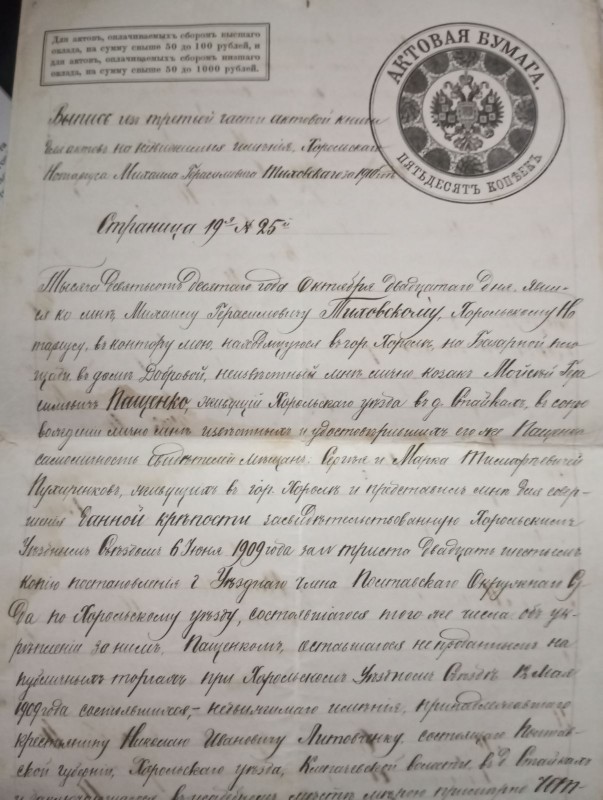 Для актовъ, оплачиваемыхъ сборомъ высшаго
оклада, на сумму свыше 50 до 100 рублей, и
для актовъ, оплачиваемыхъ сборомъ низшаго
оклада, на сумму свыше 50 до 1000 рублей.
АКТОВАЯ БУМАГА.
ПЯТЬДЕСЯТЪ КОПѢЕКЪ
Выпись изъ третьей части актовой книги
для актовъ на недвижимыя имѣнія, Хорольскаго
Нотаріуса Михаила Герасимовича Тиховскаго за 1910 годъ
Страница 19я № 25й
Тысяча девятьсотъ десятаго года Октября двадцатаго дня, явил-
ся ко мнѣ Михаилу Герасимовичу Тиховскому, Хорольскому Но
таріусу, въ контору мою, находящуюся въ гор. Хоролѣ, на Базарной пло
щади, въ домѣ Добровой, неизвѣстный мнѣ лично козакъ Мойсей Гера
симовичъ Пащенко, живущій Хорольскаго уѣзда въ д. Стайкахъ, въ сопро
вожденіи лично мнѣ извѣстныхъ и удостовѣрившихъ его же Пащенко
самоличность свидѣтелей мѣщанъ: Сергѣя и Марка
живущихъ въ гор. Хоролѣ и представилъ мнѣ для совер-
шенія данной крѣпости засвидѣтельствованную Хорольскимъ
Уѣзднымъ Съѣздомъ 6 Іюня 1909 года за № триста двадцать шестымъ
копію постановленія г. Уѣзднаго члена Полтавскаго Окружнаго Су
да по Хорольскому уѣзду, состоявшагося того же числа объ ук-
рѣпленіи за нимъ, Пащенкомъ, оставшагося непроданнымъ на
публичныхъ торгахъ при Хорольскомъ Уѣздномъ Съѣздѣ Мая
1909 года состоявшихся, - недвижимаго имѣнія, принадлежавшаго
крестьянину Николаю Ивановичу Литовченку, состоящаго Полтав-
ской губерніи, Хорольскаго уѣзда, волости, въ д. Стайкахъ
и заключающагося въ усадебномъ мѣстѣ мѣрою примѣрно